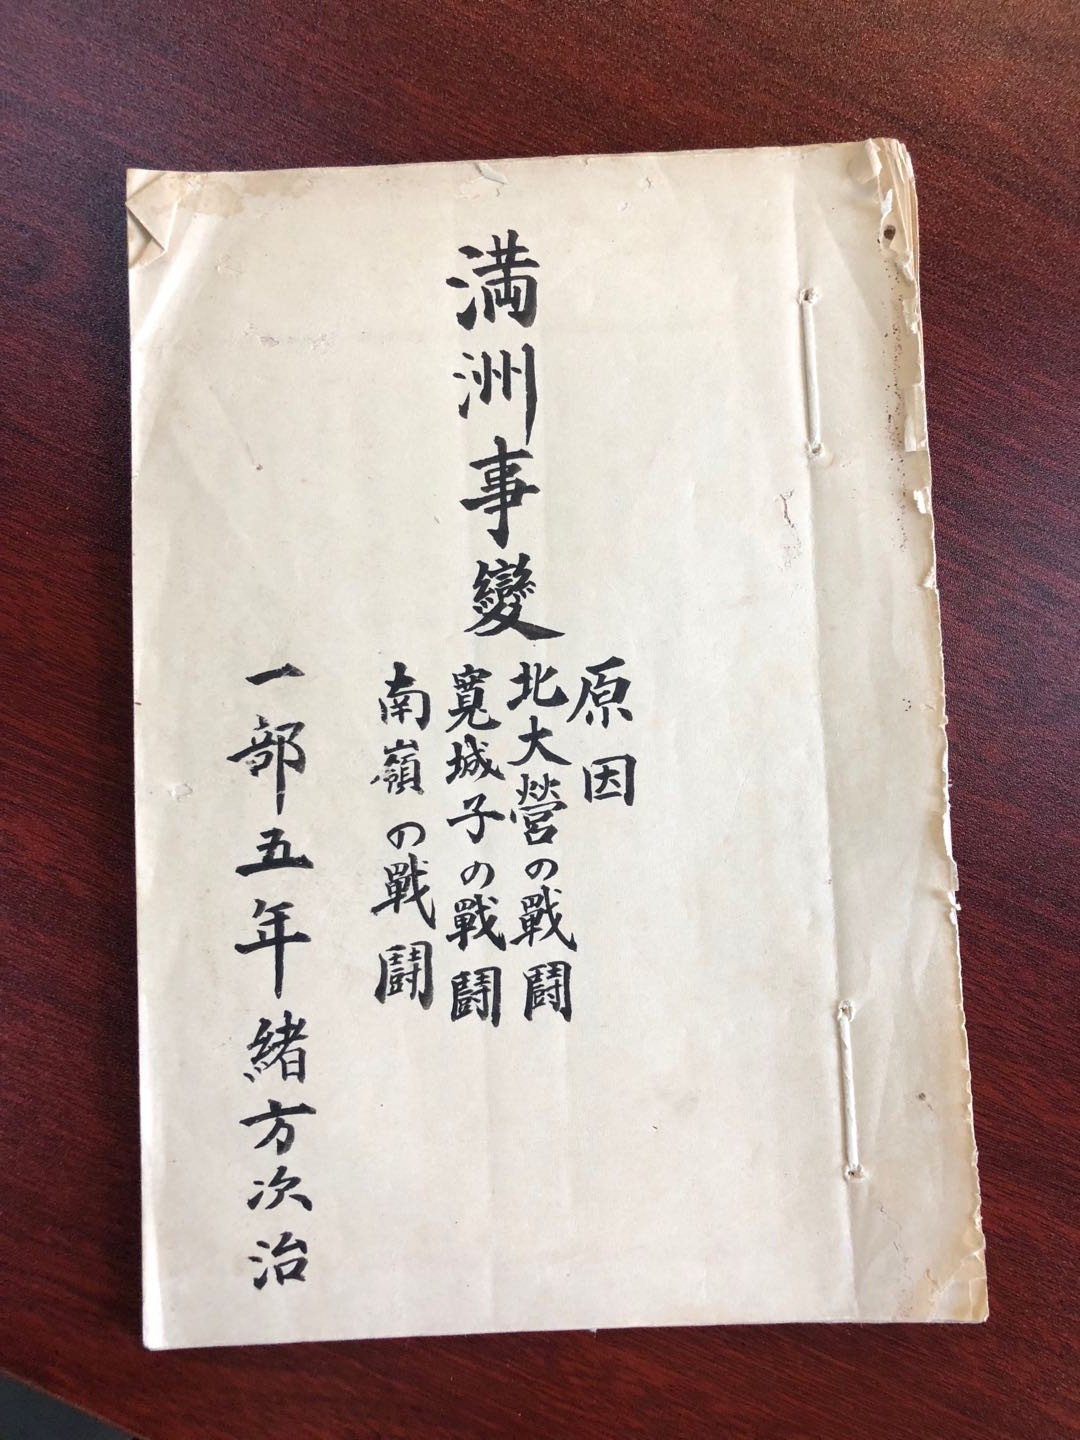 満洲事變
原因
北大營の戰鬪
寛城子の戰鬪
南嶺の戰鬪
一部五年緒方次治